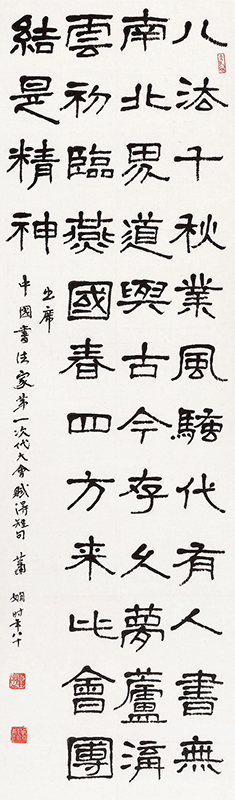 八法千秋業風騷代有人書無
南北界道與古今存久夢蘆溝
雲初臨燕國春四方来此會團
結是精神
出席
中國書法家第一次代大會賦得短句 蕭
嫻时年八十